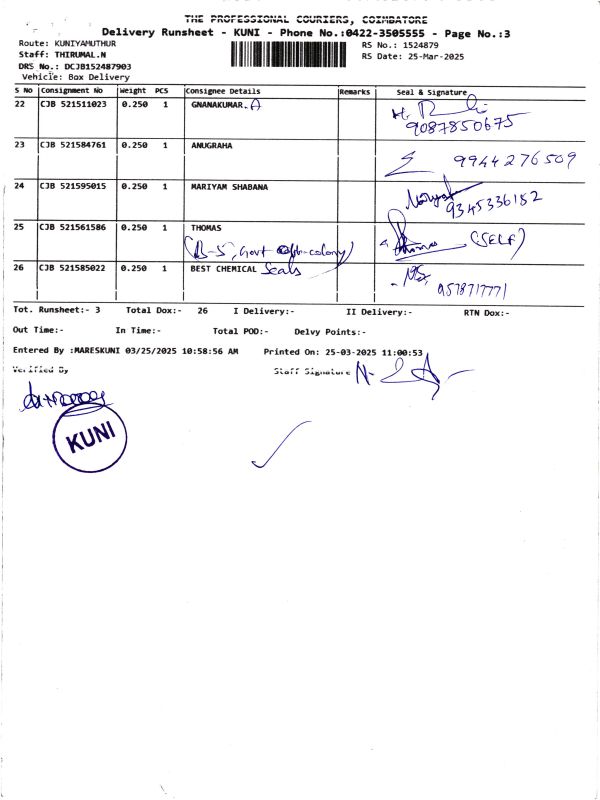 THE PROFESSIONAL COURIERS, COIMBATORE
Delivery Runsheet - KUNI - Phone No.:0422-3505555 - Page No.:3
Route: KUNIYAMUTHUR RS No.: 1524879
Staff: THIRUMAL.N RS Date: 25-Mar-2025
DRS No.: DCJB152487903
Vehicle: Box Delivery
S No Consignment No Weight PCS Consignee Details Remarks Seal & Signature
22 CJB 521511023 0.250 1 GNANAKUMAR.A
9087850675
23 CJB 521584761 0.250 1 ANUGRAHA 9944276509
24 CJB 521595015 0.250 1 MARIYAM SHABANA
9345336152
25 CJB 521561586 0.250 1 THOMAS Thomas (SELF)
(B-5, Govt colony)
26 CJB 521585022 0.250 1 BEST CHEMICAL Seals
9578717771
Tot. Runsheet:- 3 Total Dox:- 26 I Delivery:- II Delivery:- RTN Dox:-
Out Time:- In Time:- Total POD:- Delvy Points:-
Entered By :MARESKUNI 03/25/2025 10:58:56 AM Printed On: 25-03-2025 11:00:53
Verified By Staff Signature
KUNI